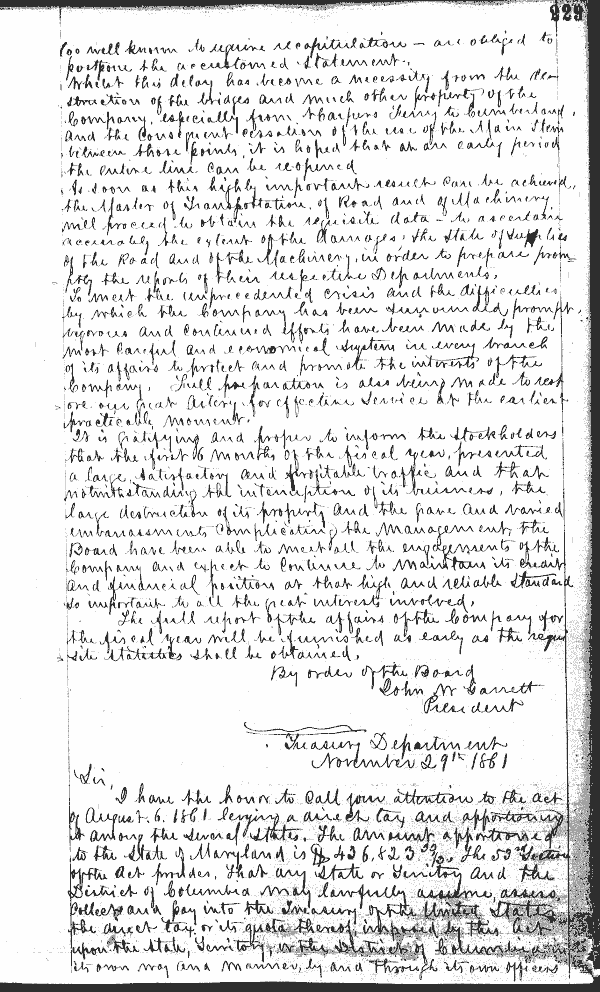 229
too well known to require recapitulation – are obliged to
postpone the accustomed statement.
Whilst this delay has become a necessity from the de-
struction of the bridges and much other property of the
Company, especially from Harpers Ferry to Cumberland,
and the consequent cessation of the use of the Main Stem
between those points, it is hoped that at an early period
the entire line can be reopened
As soon as this highly important result can be achieved,
the Master of Transportation, of Road and of Machinery
will proceed to obtain the requisite data – to ascertain
accurately the extent of the damages, the State of Supplies
of the Road and of the Machinery, in order to prepare prom
ptly the reports of their respective Departments.
To meet the unprecedented crisis and the difficulties
by which the Company has been surrounded prompt,
vigorous and continued efforts have been made by the
most careful and economical system in every branch
of its affairs to protect and promote the interests of the
Company. Full preparation is also being made to rest
ore our great Artery for effective service at the earliest
practicable moment.
It is gratifying and proper to inform the Stockholders
that the first 6 months of the fiscal year, presented
a large, satisfactory and profitable traffic and that
notwithstanding the interruption of its business, the
large destruction of its property and the grave and varied
embarrassments complicating the management, the
Board have been able to meet all the engagements of the
Company and expect to continue to maintain its credit
and financial position at that high and reliable standard
so important to all the great interests involved.
The full report of the affairs of the Company for
the fiscal year will be furnished as early as the requi
site statistics shall be obtained.
By order of the Board
John W Garrett
President
Treasury Department
November 29th 1861
Sir,
I have the honor to call your attention to the Act
of August 6. 1861 levying a direct tax and apportioning
it among the several States. The amount apportioned
to the State of Maryland is $ 436,823 33/. The 53rd Section
of the Act provides, That any State or Territory and the
District of Columbia may lawfully assume, assess,
collect and pay into the Treasury of the United States
the direct tax, or its quota thereof, imposed by this Act
upon the State, Territory, or the District of Columbia in
its own way and manner, by and through its own officers